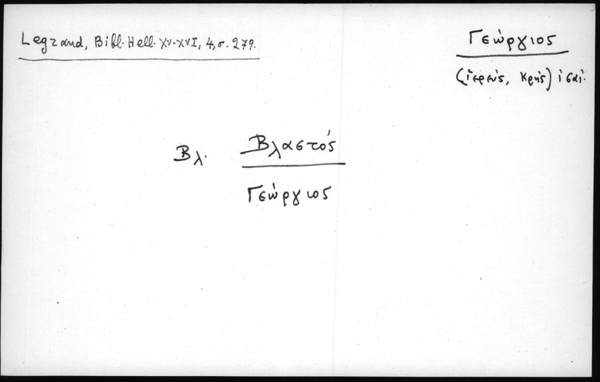 Legrand, Bibl. Hell. XV-XVI, 4, σ. 279.
Γεώργιος
(ἱερεύς, Κρής) ις΄ αἰ.
Βλ. Βλαστός
Γεώργιος